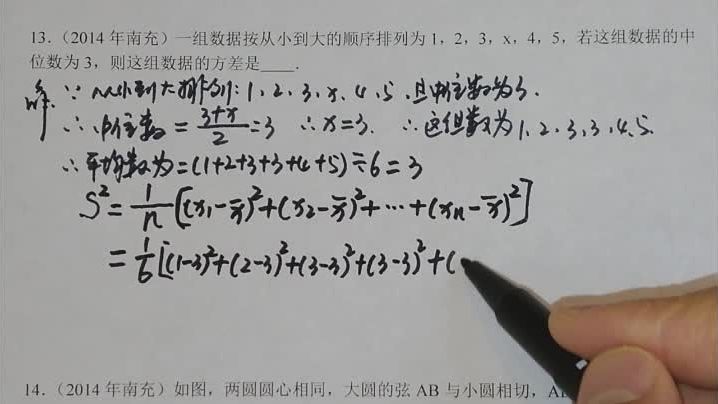 13.（2014年南充）一组数据按从小到大的顺序排列为1，2，3，x，4，5，若这组数据的中
位数为3，则这组数据的方差是____.
解：∵从小到大排列：1、2、3、x、4、5，且中位数为3.
∴中位数=(3+x)/2=3 ∴x=3. ∴这组数为1、2、3、3、4、5.
∴平均数为=(1+2+3+3+4+5)÷6=3
S²=1/n[(x₁-x̄)²+(x₂-x̄)²+…+(xₙ-x̄)²]
=1/6[(1-3)²+(2-3)²+(3-3)²+(3-3)²+(
14.（2014年南充）如图，两圆圆心相同，大圆的弦AB与小圆相切，